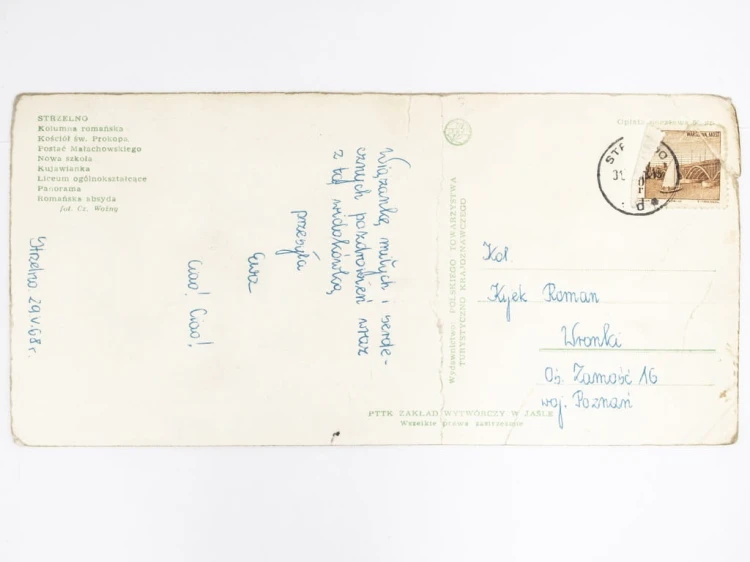 STRZELNO
Kolumna romańska
Kościół św. Prokopa
Postać Małachowskiego
Nowa szkoła
Kujawianka
Liceum ogólnokształcące
Panorama
Romańska absyda
fot. Cz. Woźny
Strzelno 29.V.68r.
Wiązankę miłych i serde-
cznych pozdrowień wraz
z tą widokówką
przesyła
Ewa
Ciao! Ciao!
Wydawnictwo POLSKIEGO TOWARZYSTWA
TURYSTYCZNO KRAJOZNAWCZEGO
PTTK ZAKŁAD WYTWÓRCZY W JAŚLE
Wszelkie prawa zastrzeżone
Opłata
WARSZAWA
Kol
Kyek Roman
Wronki
Oś. Zamość 16
woj. Poznań